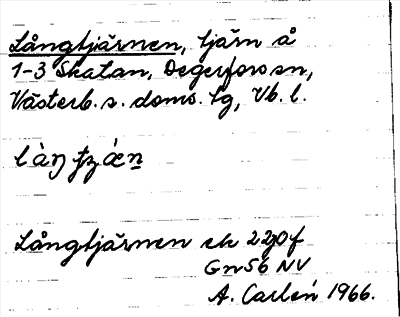 Långtjärnen, tjärn å
1-3 Skatan, Degerfors sn,
Västerb. s. doms. tg, Vb. l.
Långtjärnen ek 22J0f
Gn56 NV
A. Carlén 1966.